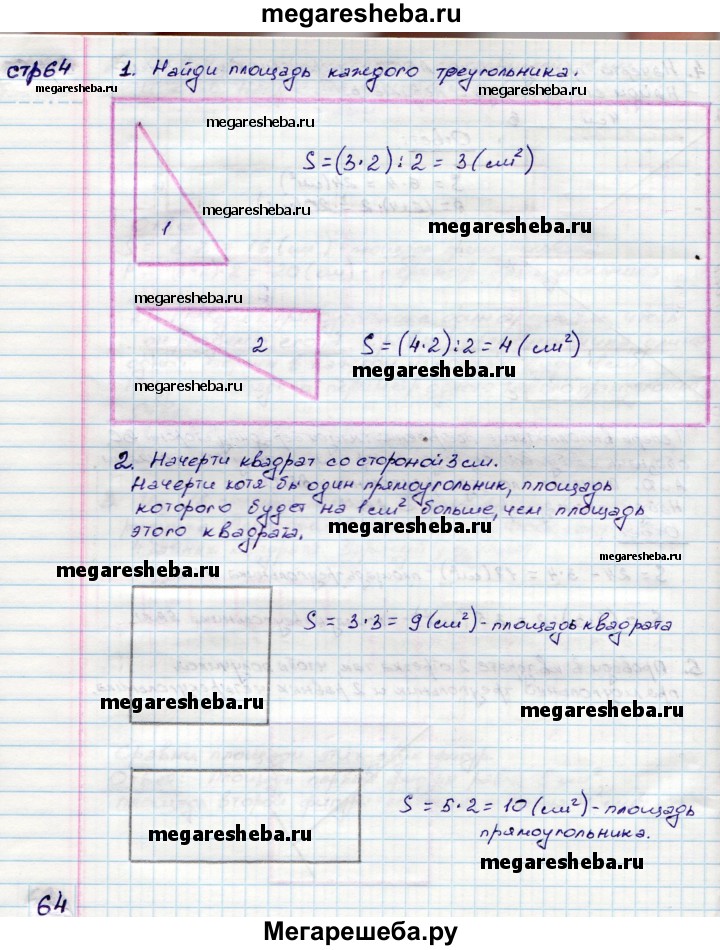 megaresheba.ru
стр64
megaresheba.ru
1. Найди площадь каждого треугольника.
megaresheba.ru
megaresheba.ru
S=(3·2):2=3(см²)
megaresheba.ru
1
megaresheba.ru
megaresheba.ru
2
S=(4·2):2=4(см²)
megaresheba.ru
megaresheba.ru
2. Начерти квадрат со стороной 3 см.
Начерти хотя бы один прямоугольник, площадь
которого будет на 1 см² больше, чем площадь
этого квадрата.
megaresheba.ru
megaresheba.ru
megaresheba.ru
S = 3·3= 9(см²)-площадь квадрата
megaresheba.ru
megaresheba.ru
S = 5·2=10(см²)-площадь
прямоугольника.
megaresheba.ru
megaresheba.ru
64
Мегарешеба.ру